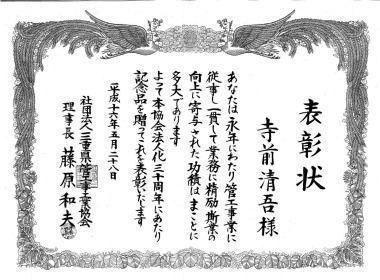 表彰状
寺前清吾様
あなたは永年にわたり管工事業に
従事し一貫して業務に精励斯業の
向上に寄与された功績はまことに
多大であります
よって本協会法人化三十周年にあたり
記念品を贈ってこれを表彰いたします
平成十六年五月二十八日
社団法人三重県管工事業協会
理事長 藤原和夫